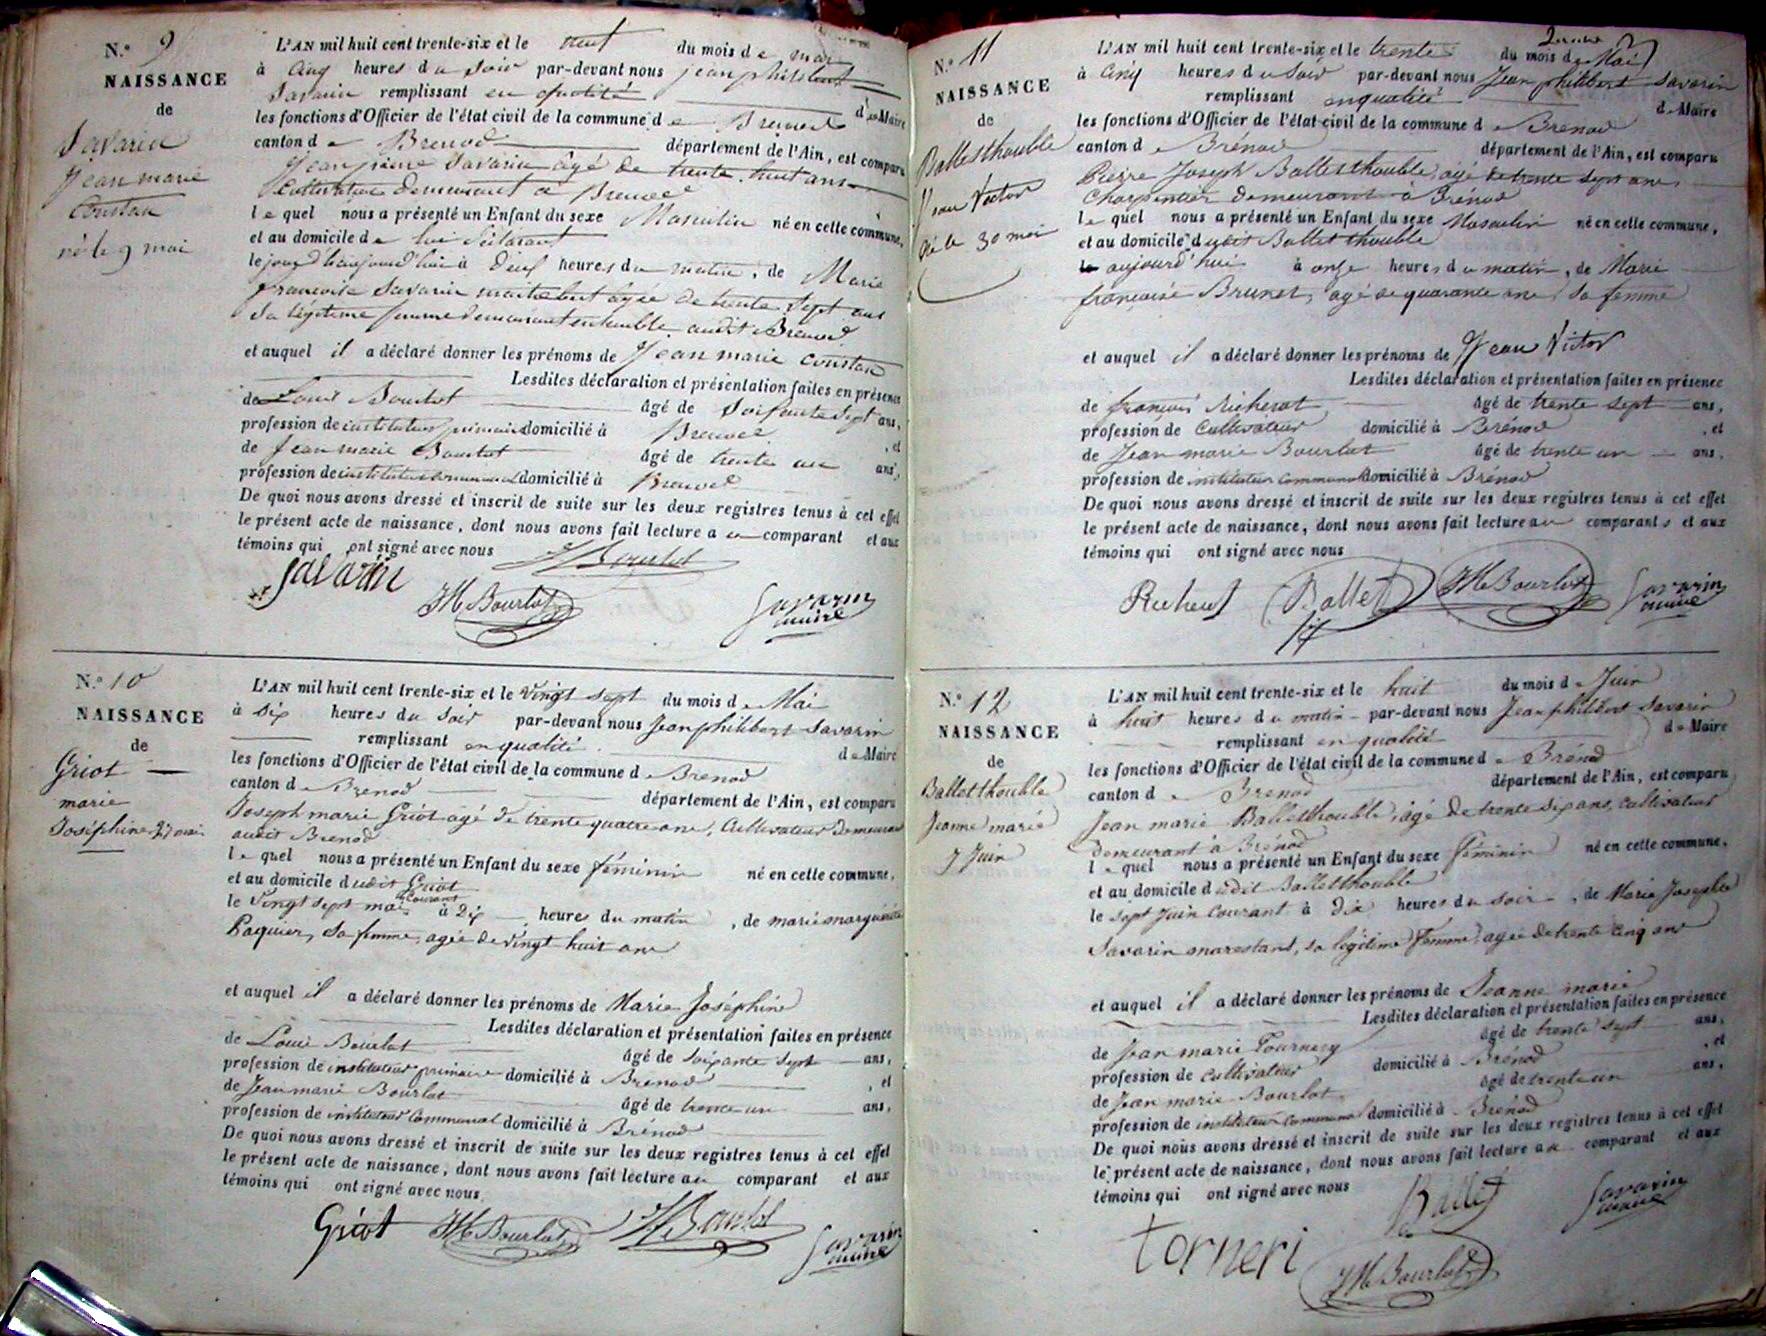 N.º 9
NAISSANCE
de
Savarin
Jean marie
Constan
né le 9 mai
L'AN mil huit cent trente-six et le neuf du mois de mai
à cinq heures du soir par-devant nous jean philibert
Savarin remplissant en qualité de Maire
les fonctions d'Officier de l'état civil de la commune de Brenod
canton de Brenod département de l'Ain, est comparu
Jean pierre Savarin âgé de trente huit ans
Cultivateur demeurant à Brenod
lequel nous a présenté un Enfant du sexe Masculin né en cette commune,
et au domicile de lui déclarant
le jour d'haujourd'hui à deux heures du matin, de Marie
françoise Savarin âgée de trente sept ans
sa légitime femme demeurant ensemble audit Brenod
et auquel il a déclaré donner les prénoms de Jean marie constan
Lesdites déclaration et présentation faites en présence
de Louis Bourlot âgé de Soixante Sept ans,
profession de instituteur primaire domicilié à Brenod, et
de Jean marie Bourlot âgé de trente un ans,
profession de instituteur communal domicilié à Brenod
De quoi nous avons dressé et inscrit de suite sur les deux registres tenus à cet effet
le présent acte de naissance, dont nous avons fait lecture au comparant et aux
témoins qui ont signé avec nous
Savarin
Bourlot
JM Bourlot
Savarin
maire
N.º 10
NAISSANCE
de
Griot
marie
Joséphine 27 mai
L'AN mil huit cent trente-six et le vingt sept du mois de Mai
à six heures du soir par-devant nous Jean philibert Savarin
remplissant en qualité de Maire
les fonctions d'Officier de l'état civil de la commune de Brenod
canton de Brenod département de l'Ain, est comparu
Joseph marie Griot agé de trente quatre ans, Cultivateur demeurant
audit Brenod
lequel nous a présenté un Enfant du sexe féminin né en cette commune,
et au domicile dudit Griot
le vingt sept mai courant à dix heures du matin, de marie marguerite
Paquier, sa femme, agée de vingt huit ans
et auquel il a déclaré donner les prénoms de Marie Joséphine
Lesdites déclaration et présentation faites en présence
de Louis Bourlot âgé de soixante sept ans,
profession de instituteur primaire domicilié à Brenod, et
de Jean marie Bourlot âgé de trente un ans,
profession de instituteur communal domicilié à Brénod
De quoi nous avons dressé et inscrit de suite sur les deux registres tenus à cet effet
le présent acte de naissance, dont nous avons fait lecture au comparant et aux
témoins qui ont signé avec nous
Griot JM Bourlot Bourlot Savarin
maire
N.º 11
NAISSANCE
de
Balletthouble
Jean Victor
né le 30 mai
L'AN mil huit cent trente-six et le trente du mois de Mai
à cinq heures du soir par-devant nous Jean philibert Savarin
remplissant en qualité de Maire
les fonctions d'Officier de l'état civil de la commune de Brénod
canton de Brénod département de l'Ain, est comparu
Pierre Joseph Balletthouble, agé de trente sept ans
Charpentier demeurant à Brénod
lequel nous a présenté un Enfant du sexe Masculin né en cette commune,
et au domicile dudit Balletthouble
le aujourd'hui à onze heures du matin, de Marie
françoise Brunet, agé de quarante ans, sa femme
et auquel il a déclaré donner les prénoms de Jean Victor
Lesdites déclaration et présentation faites en présence
de françois Richerot âgé de trente sept ans,
profession de Cultivateur domicilié à Brénod, et
de Jean marie Bourlot âgé de trente un ans,
profession de instituteur communal domicilié à Brénod
De quoi nous avons dressé et inscrit de suite sur les deux registres tenus à cet effet
le présent acte de naissance, dont nous avons fait lecture au comparants et aux
témoins qui ont signé avec nous
Ballet JM Bourlot Savarin
maire
N.º 12
NAISSANCE
de
Balletthouble
Jeanne marie
7 Juin
L'AN mil huit cent trente-six et le huit du mois de Juin
à huit heures du matin par-devant nous Jean philibert Savarin
remplissant en qualité de Maire
les fonctions d'Officier de l'état civil de la commune de Brénod
canton de Brénod département de l'Ain, est comparu
Jean marie Balletthouble, agé de trente six ans, cultivateur
demeurant à Brénod
lequel nous a présenté un Enfant du sexe féminin né en cette commune,
et au domicile dudit Balletthouble
le sept Juin courant à dix heures du soir, de Marie Josephte
Savarin marestand, sa légitime femme, agée de trente cinq ans
et auquel il a déclaré donner les prénoms de Jeanne marie
Lesdites déclaration et présentation faites en présence
de Jean marie Tournery âgé de trente sept ans,
profession de cultivateur domicilié à Brénod, et
de Jean marie Bourlot âgé de trente un ans,
profession de instituteur communal domicilié à Brénod
De quoi nous avons dressé et inscrit de suite sur les deux registres tenus à cet effet
le présent acte de naissance, dont nous avons fait lecture au comparant et aux
témoins qui ont signé avec nous
Ballet
Savarin
maire
torneri
JM Bourlot